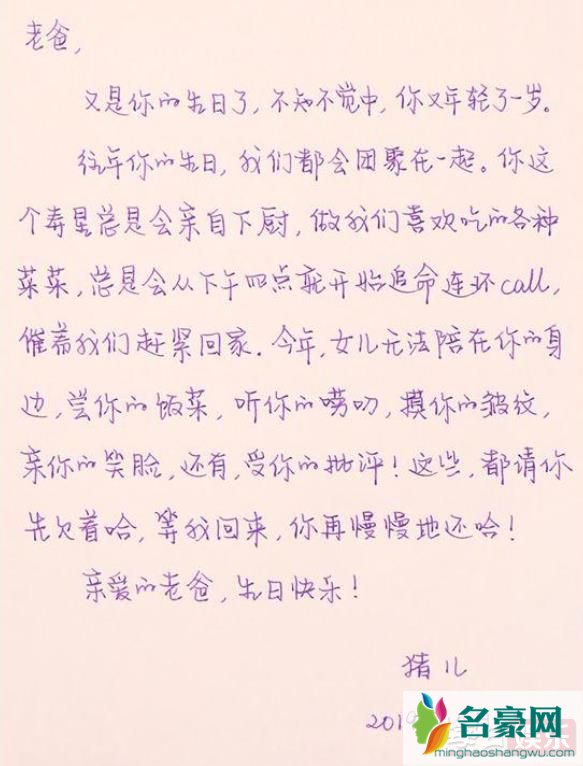 老爸，
又是你的生日了，不知不觉中，你又年轻了一岁。
往年你的生日，我们都会团聚在一起。你这
个寿星总是会亲自下厨，做我们喜欢吃的各种
菜菜，总是会从下午四点就开始追命连环call，
催着我们赶紧回家．今年，女儿无法陪在你的身
边，尝你的饭菜，听你的唠叨，摸你的皱纹，
亲你的笑脸，还有，受你的批评！这些，都请你
先欠着哈，等我回来，你再慢慢地还哈！
亲爱的老爸，生日快乐！
猪儿
201
名豪网
minghaoshangwu.com